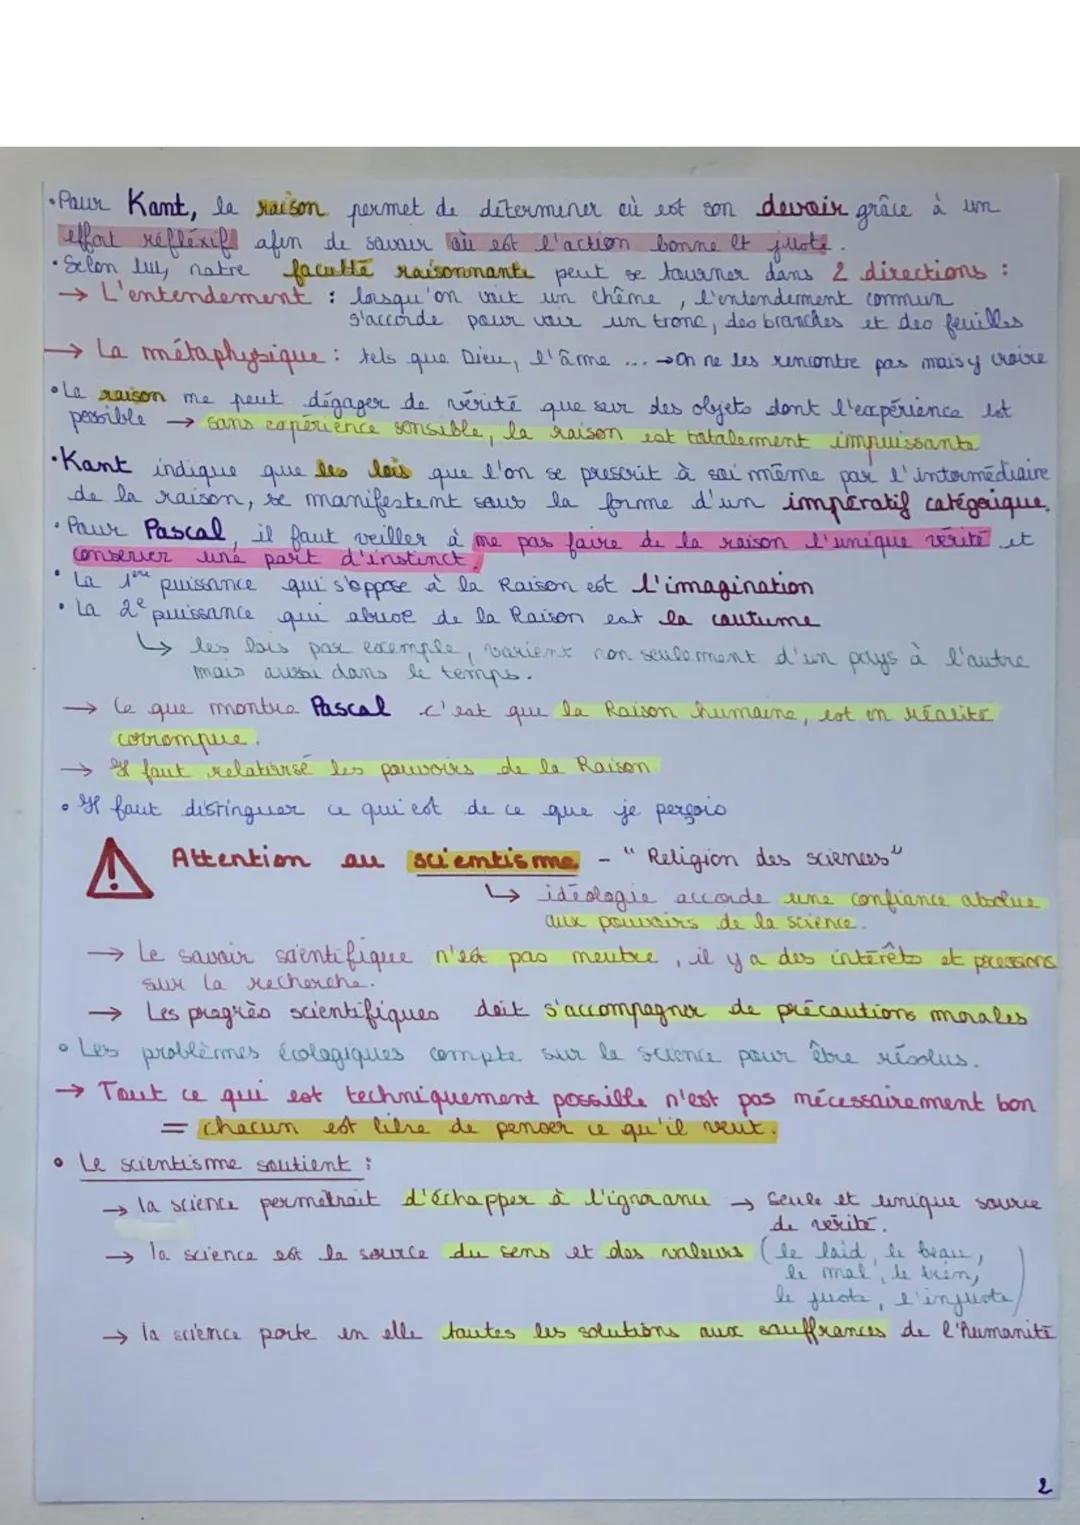 • Pour Kant, la raison permet de déterminer où est son devoir grâce à un
effort réfléxif afin de savoir où est l'action bonne et juste.
• Selon lui, notre faculté raisonnante peut se tourner dans 2 directions :
→ L'entendement : lorsqu'on voit un chêne, l'entendement commun
s'accorde pour voir un tronc, des branches et des feuilles
→ La métaphysique : tels que Dieu, l'âme ... → On ne les rencontre pas mais y croire
• La raison ne peut dégager de vérité que sur des objets dont l'expérience est
possible → sans expérience sensible, la raison est totalement impuissante
• Kant indique que les lois que l'on se prescrit à soi même par l'intermédiaire
de la raison, se manifestent sous la forme d'un impératif catégorique.
• Pour Pascal, il faut veiller à ne pas faire de la raison l'unique vérité et
conserver une part d'instinct.
• La 1ère puissance qui s'oppose à la Raison est l'imagination
• La 2e puissance qui abuse de la Raison est la coutume
↳ les lois par exemple, varient non seulement d'un pays à l'autre
mais aussi dans le temps.
→ Ce que montre Pascal c'est que la Raison humaine, est en réalité
corrompue.
→ Il faut relativisé les pouvoirs de la Raison.
• Il faut distinguer ce qui est de ce que je perçois
! Attention au scientisme - "Religion des sciences"
↳ idéologie accorde une confiance absolue
aux pouvoirs de la science.
→ Le savoir scientifique n'est pas neutre, il y a des intérêts et pressions
sur la recherche.
→ Les progrès scientifiques doit s'accompagner de précautions morales
• Les problèmes écologiques compte sur la science pour être résolus.
→ Tout ce qui est techniquement possible n'est pas nécessairement bon
= chacun est libre de penser ce qu'il veut.
• Le scientisme soutient :
→ la science permetrait d'échapper à l'ignorance → Seule et unique source
de vérité.
→ la science est la source du sens et des valeurs (le laid, le beau,
le mal, le bien,
le juste, l'injuste)
→ la science porte en elle toutes les solutions aux souffrances de l'humanité
2